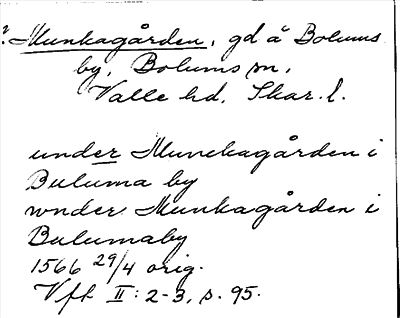 ? Munkagården, gd å Bolums
by, Bolums sn,
Valle hd, Skar. l.
under Munckagården i
Buluma by
wnder Munkagården i
Bulumaby
1566 29/4 orig.
Vft II: 2-3, s. 95.